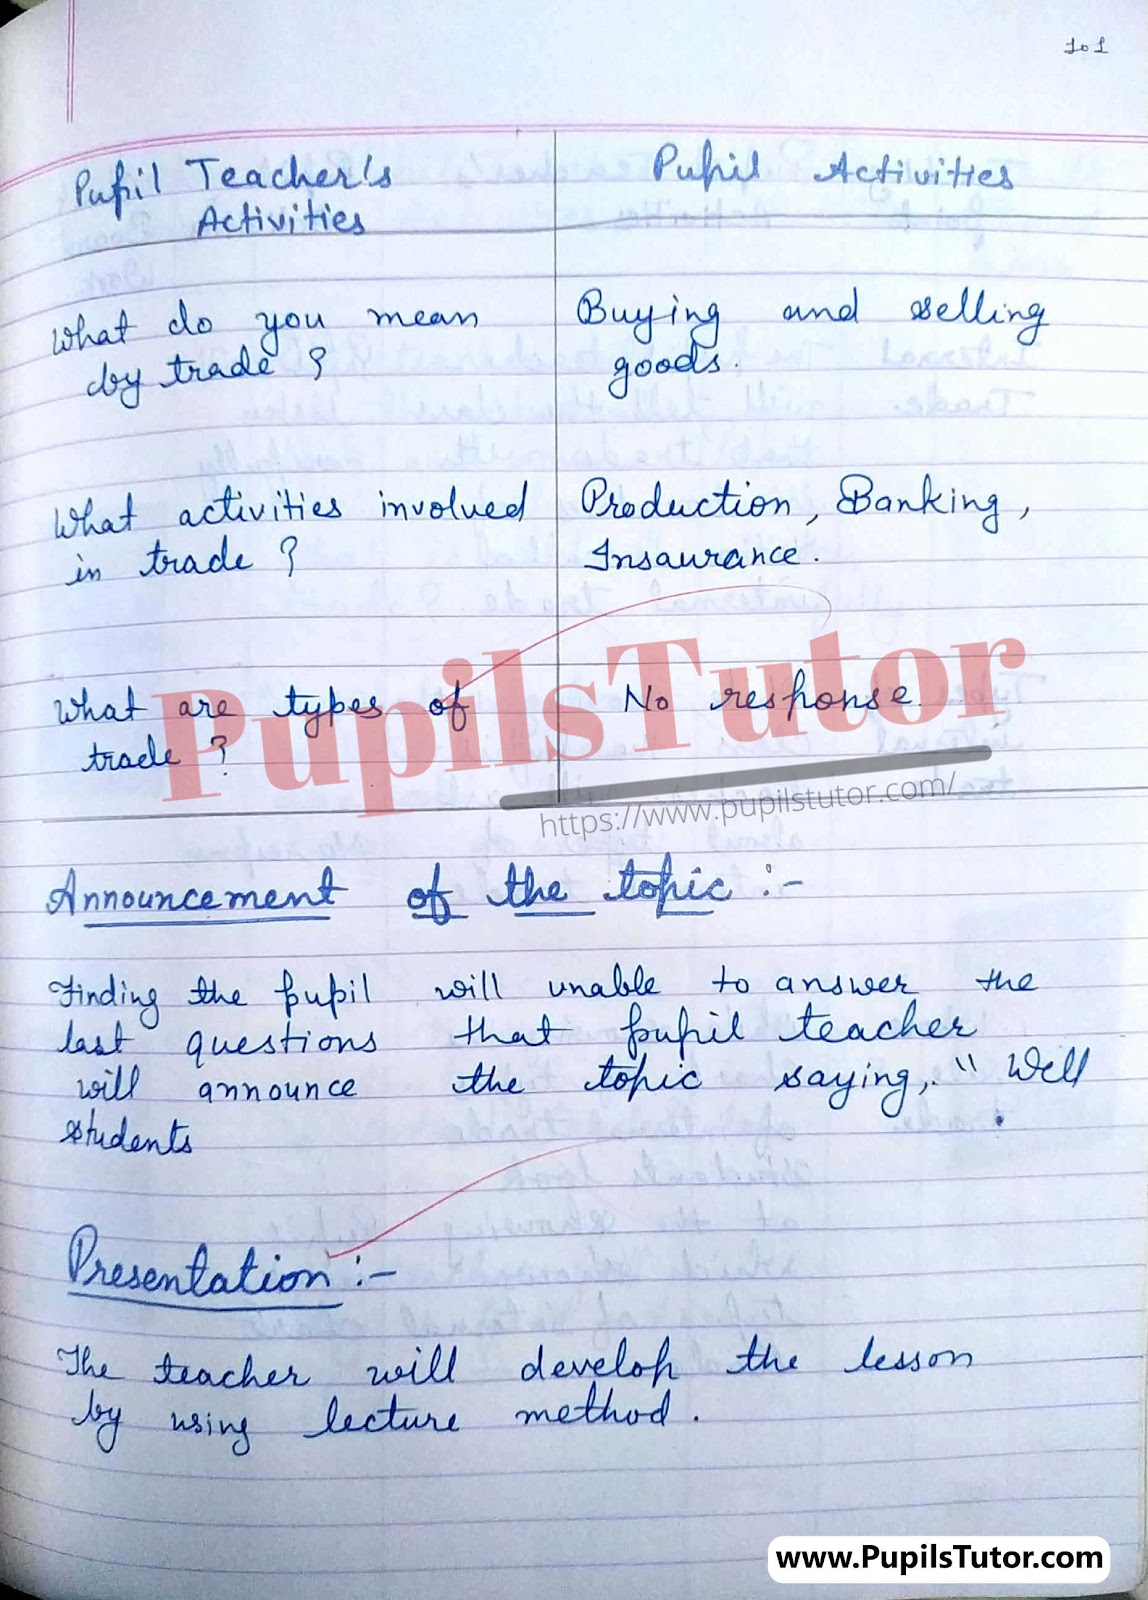 101
Pupil Teacher's
Activities
Pupil Activities
What do you mean
by trade ?
Buying and selling
goods.
What activities involved
in trade ?
Production, Banking,
Insaurance.
What are types of
trade ?
No response.
PupilsTutor
https://www.pupilstutor.com/
Announcement of the topic :-
Finding the pupil will unable to answer the
last questions that pupil teacher
will announce the topic saying, " Well
students
Presentation :-
The teacher will develop the lesson
by using lecture method.
www.PupilsTutor.com